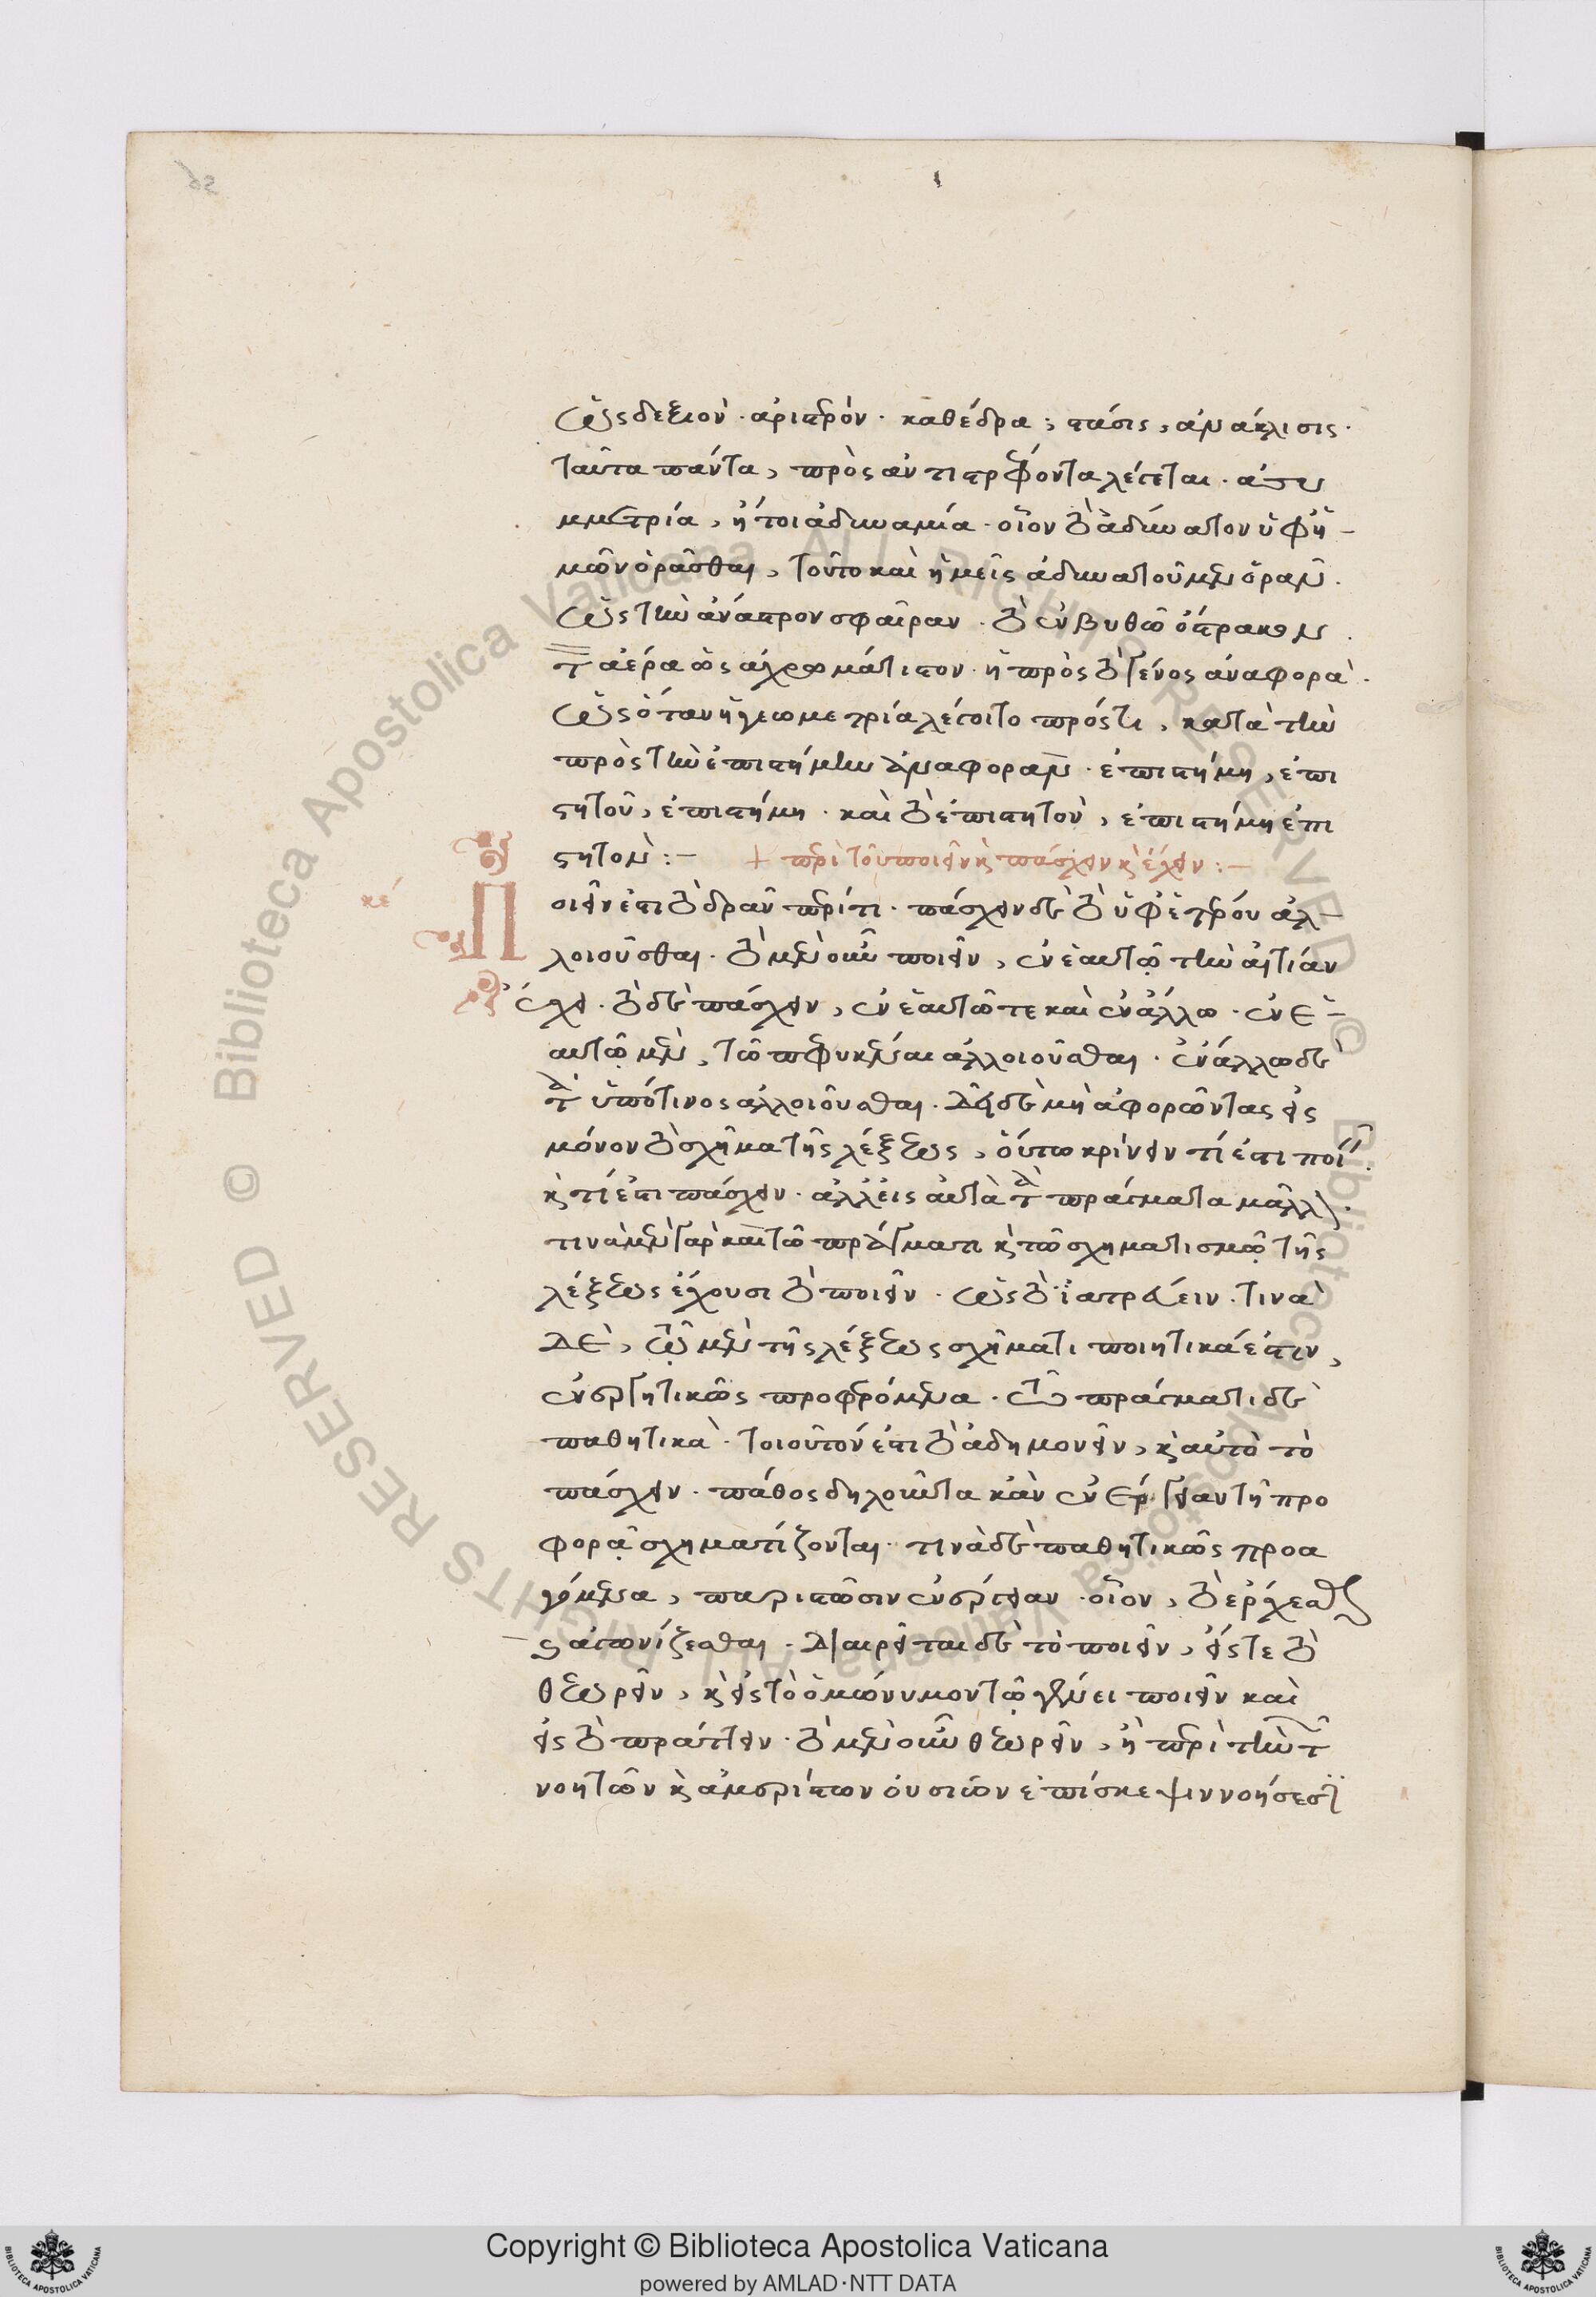 ὡς δεξιὸν · ἀριστερόν · καθέδρα, στάσις, ἀνάκλισις ·
ταῦτα πάντα, πρὸς ἀντιστρέφοντα λέγεται · ἀσυ
μμετρία, ἤτοι ἀδυναμία · οἷον τὸ ἀδύνατον ὑφ' ἡ-
μῶν ὁρᾶσθαι, τοῦτο καὶ ἡμεῖς ἀδυνατοῦμεν ὁρᾶν.
ὡς τὴν ἄναστρον σφαῖραν · τὸ ἐν βυθῷ ὄστρακον.
τὸν ἀέρα ὡς ἀχρωμάτιστον · ἡ πρὸς τὸ γένος ἀναφορά.
ὡς ὅταν ἡ γεωμετρία λέγοιτο πρός τι, κατὰ τὴν
πρὸς τὴν ἐπιστήμην ἀναφοράν · ἐπιστήμη, ἐπι
στητοῦ, ἐπιστήμη · καὶ τὸ ἐπιστητὸν, ἐπιστήμη ἐπι
στητόν :-
+ περὶ τοῦ ποιεῖν κ πάσχειν κ ἔχειν :-
κε
Ποιεῖν ἐστι τὸ δρᾶν περί τι · πάσχειν δὲ τὸ ὑφ' ἑτέρου ἀλ-
λοιοῦσθαι · τὸ μὲν οὖν ποιεῖν, ἐν ἑαυτῷ τὴν αἰτίαν
ἔχει · τὸ δὲ πάσχειν, ἐν ἑαυτῷ τε καὶ ἐν ἄλλω · ἐν ἑ-
αυτῷ μὲν, τῶ πεφυκέναι ἀλλοιοῦσθαι · ἐν ἄλλω δὲ
τὸ ὑπό τινος ἀλλοιοῦσθαι · δεῖ δὲ μὴ ἀφορῶντας εἰς
μόνον τὸ σχῆμα τῆς λέξεως, οὕτω κρίνειν τί ἐστι ποι.
κ τί ἐστι πάσχειν · ἀλλ' εἰς αὐτὰ τὰ πράγματα μᾶλλον.
τινὰ μὲν γὰρ καὶ τῶ πράγματι κ τῶ σχηματισμῷ τῆς
λέξεως ἔχουσι τὸ ποιεῖν · ὡς τὸ ἰατρεύειν · τινὰ
δὲ, τῷ μὲν τῆς λέξεως σχήματι ποιητικά ἐστιν,
ἐνεργητικῶς προφερόμενα · τῶ πράγματι δὲ
παθητικὰ · τοιοῦτόν ἐστι τὸ ἀδημονεῖν, κ αὐτὸ τὸ
πάσχειν · πάθος δηλοῦντα κἂν ἐνέργειαν τῇ προ
φορᾷ σχηματίζονται · τινὰ δὲ παθητικῶς προα
γόμενα, παριστῶσιν ἐνέργειαν · οἷον, τὸ ἔρχεσθαι
κ ἀγωνίζεσθαι · διαιρεῖται δὲ τὸ ποιεῖν, εἴς τε τὸ
θεωρεῖν, κ εἰς τὸ ὁμώνυμον τῷ γένει ποιεῖν καὶ
εἰς τὸ πράττειν · τὸ μὲν οὖν θεωρεῖν, ἢ περὶ τὴν τῶν
νοητῶν κ ἀμερίστων οὐσιῶν ἐπίσκεψιν